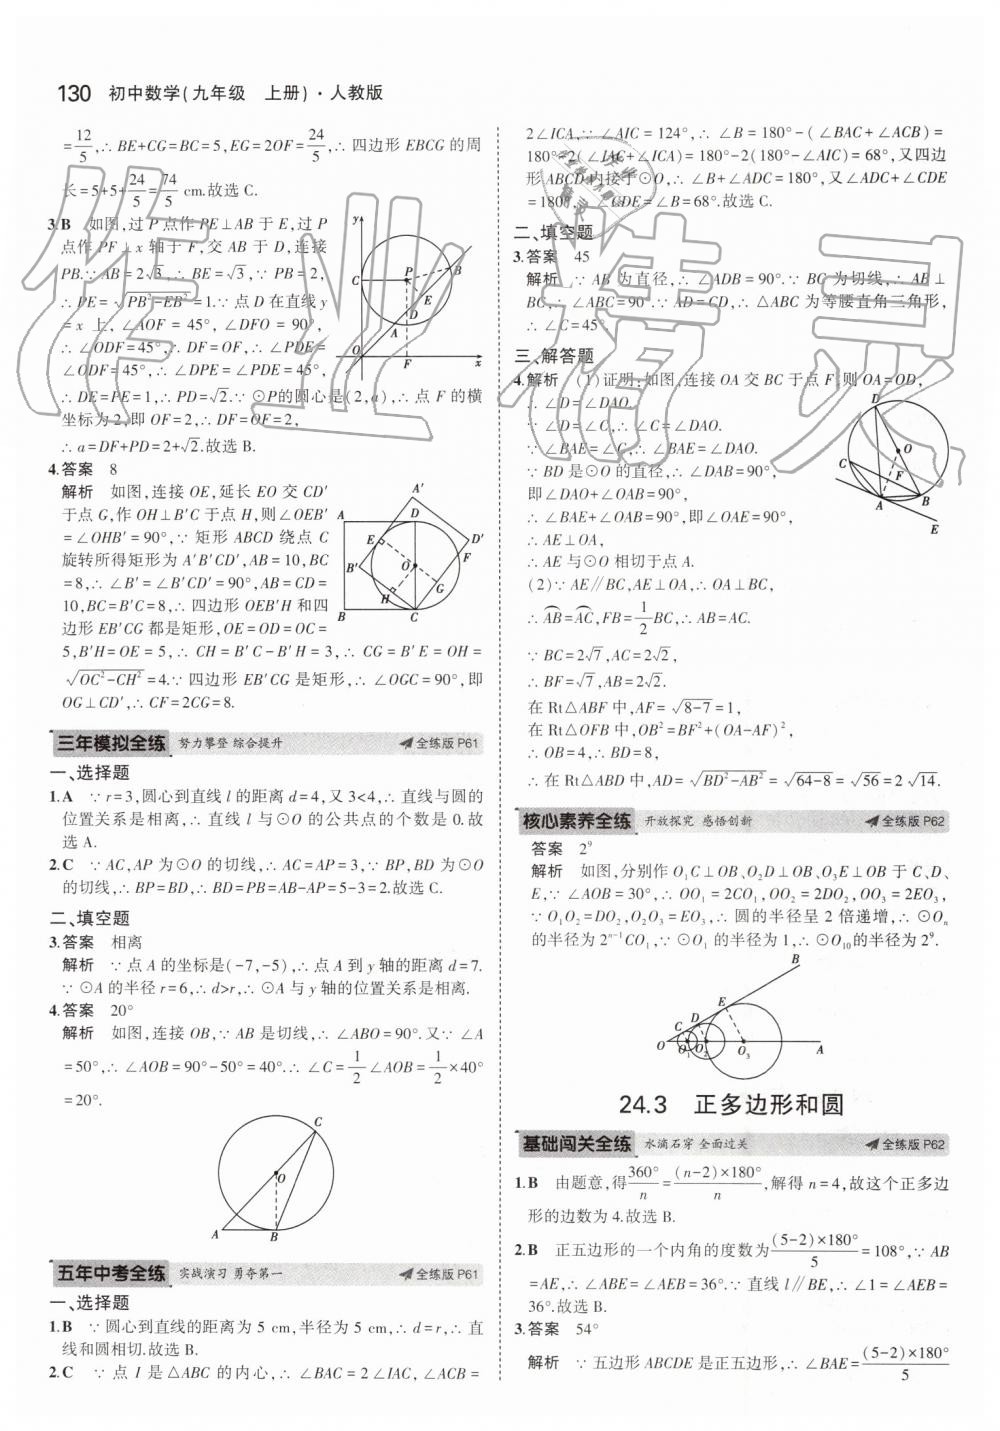 130 初中数学(九年级 上册)·人教版
=12/5,∴BE+CG=BC=5,EG=2OF=24/5,∴四边形 EBCG 的周
长=5+5+24/5=74/5 cm.故选 C.
3.B 如图,过 P 点作 PE⊥AB 于 E,过 P
点作 PF⊥x 轴于 F,交 AB 于 D,连接
PB.∵AB=2√3,∴BE=√3,∵PB=2,
∴PE=√(PB²-EB²)=1.∵点 D 在直线 y
=x 上,∠AOF=45°,∠DFO=90°,
∴∠ODF=45°,∴DF=OF,∴∠PDE=
∠ODF=45°,∴∠DPE=∠PDE=45°,
∴DE=PE=1,∴PD=√2.∵⊙P的圆心是(2,a),∴点 F 的横
坐标为 2,即 OF=2,∴DF=OF=2,
∴a=DF+PD=2+√2.故选 B.
y
C
P
B
E
D
A
O
F
x
4.答案 8
解析 如图,连接 OE,延长 EO 交 CD′
于点 G,作 OH⊥B′C 于点 H,则∠OEB′
=∠OHB′=90°,∵矩形 ABCD 绕点 C
旋转所得矩形为 A′B′CD′,AB=10,BC
=8,∴∠B′=∠B′CD′=90°,AB=CD=
10,BC=B′C=8,∴四边形 OEB′H 和四
边形 EB′CG 都是矩形,OE=OD=OC=
5,B′H=OE=5,∴CH=B′C-B′H=3,∴CG=B′E=OH=
√(OC²-CH²)=4.∵四边形 EB′CG 是矩形,∴∠OGC=90°,即
OG⊥CD′,∴CF=2CG=8.
A′
A
D
D′
E
F
O
B′
G
H
B
C
三年模拟全练 努力攀登 综合提升 全练版 P61
一、选择题
1.A ∵r=3,圆心到直线 l 的距离 d=4,又 3<4,∴直线与圆的
位置关系是相离,∴直线 l 与⊙O 的公共点的个数是 0.故
选 A.
2.C ∵AC,AP 为⊙O 的切线,∴AC=AP=3,∵BP,BD 为⊙O
的切线,∴BP=BD,∴BD=PB=AB-AP=5-3=2.故选 C.
二、填空题
3.答案 相离
解析 ∵点 A 的坐标是(-7,-5),∴点 A 到 y 轴的距离 d=7.
∵⊙A 的半径 r=6,∴d>r,∴⊙A 与 y 轴的位置关系是相离.
4.答案 20°
解析 如图,连接 OB,∵AB 是切线,∴∠ABO=90°.又∵∠A
=50°,∴∠AOB=90°-50°=40°.∴∠C=1/2∠AOB=1/2×40°
=20°.
C
O
A
B
五年中考全练 实战演习 勇夺第一 全练版 P61
一、选择题
1.B ∵圆心到直线的距离为 5 cm,半径为 5 cm,∴d=r,∴直
线和圆相切.故选 B.
2.C ∵点 I 是△ABC 的内心,∴∠BAC=2∠IAC,∠ACB=
2∠ICA,∵∠AIC=124°,∴∠B=180°-(∠BAC+∠ACB)=
180°-2(∠IAC+∠ICA)=180°-2(180°-∠AIC)=68°,又四边
形 ABCD 内接于⊙O,∴∠B+∠ADC=180°,又∠ADC+∠CDE
=180°,∴∠CDE=∠B=68°.故选 C.
二、填空题
3.答案 45
解析 ∵AB 为直径,∴∠ADB=90°.∵BC 为切线,∴AB⊥
BC,∴∠ABC=90°.∵AD=CD,∴△ABC 为等腰直角三角形,
∴∠C=45°.
三、解答题
4.解析 (1)证明:如图,连接 OA 交 BC 于点 F,则 OA=OD,
∴∠D=∠DAO.
∵∠D=∠C,∴∠C=∠DAO.
∵∠BAE=∠C,∴∠BAE=∠DAO.
∵BD 是⊙O 的直径,∴∠DAB=90°,
即∠DAO+∠OAB=90°.
∴∠BAE+∠OAB=90°,即∠OAE=90°,
∴AE⊥OA,
∴AE 与⊙O 相切于点 A.
D
O
C
F
A
B
E
(2)∵AE∥BC,AE⊥OA,∴OA⊥BC,
∴AB⌒=AC⌒,FB=1/2BC,∴AB=AC.
∵BC=2√7,AC=2√2,
∴BF=√7,AB=2√2.
在 Rt△ABF 中,AF=√(8-7)=1,
在 Rt△OFB 中,OB²=BF²+(OA-AF)²,
∴OB=4,∴BD=8,
∴在 Rt△ABD 中,AD=√(BD²-AB²)=√(64-8)=√56=2√14.
核心素养全练 开放探究 感悟创新 全练版 P62
答案 2⁹
解析 如图,分别作 O₁C⊥OB、O₂D⊥OB、O₃E⊥OB 于 C、D、
E,∵∠AOB=30°,∴OO₁=2CO₁,OO₂=2DO₂,OO₃=2EO₃,
∵O₁O₂=DO₂,O₂O₃=EO₃,∴圆的半径呈 2 倍递增,∴⊙Oₙ
的半径为 2ⁿ⁻¹CO₁,∵⊙O₁ 的半径为 1,∴⊙O₁₀的半径为 2⁹.
B
E
D
C
O
O₁
O₂
O₃
A
24.3 正多边形和圆
基础闯关全练 水滴石穿 全面过关 全练版 P62
1.B 由题意,得360°/n=(n-2)×180°/n,解得 n=4,故这个正多边
形的边数为 4.故选 B.
2.B 正五边形的一个内角的度数为(5-2)×180°/5=108°,∵AB
=AE,∴∠ABE=∠AEB=36°.∵直线 l∥BE,∴∠1=∠AEB=
36°.故选 B.
3.答案 54°
解析 ∵五边形 ABCDE 是正五边形,∴∠BAE=(5-2)×180°/5
作业精灵